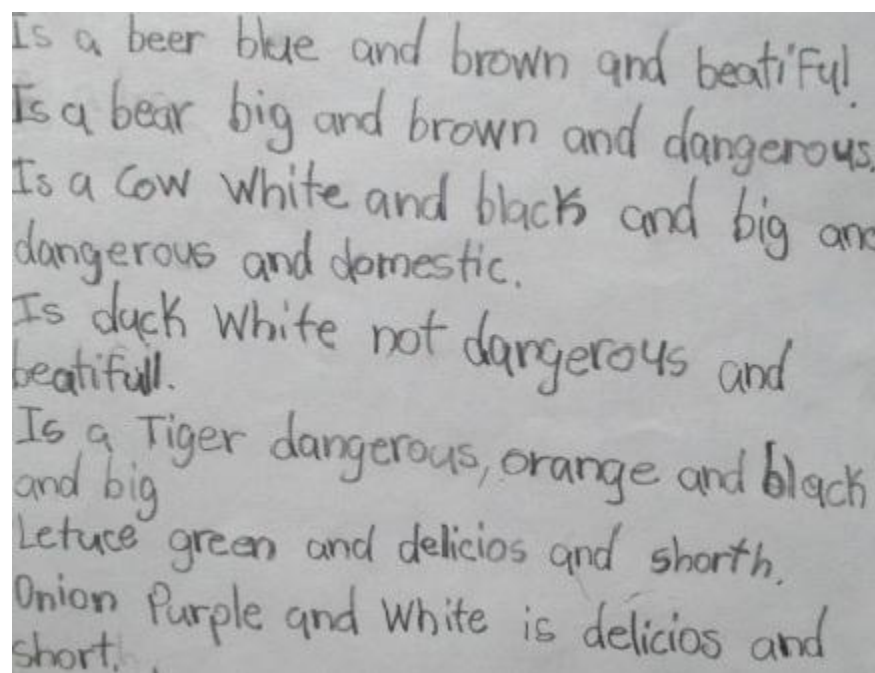 Is a beer blue and brown and beatiful.
Is a bear big and brown and dangerous.
Is a Cow White and black and big and
dangerous and domestic.
Is duck White not dangerous and
beatifull.
Is a Tiger dangerous, orange and black
and big
Letuce green and delicios and shorth.
Onion Purple and White is delicios and
short.